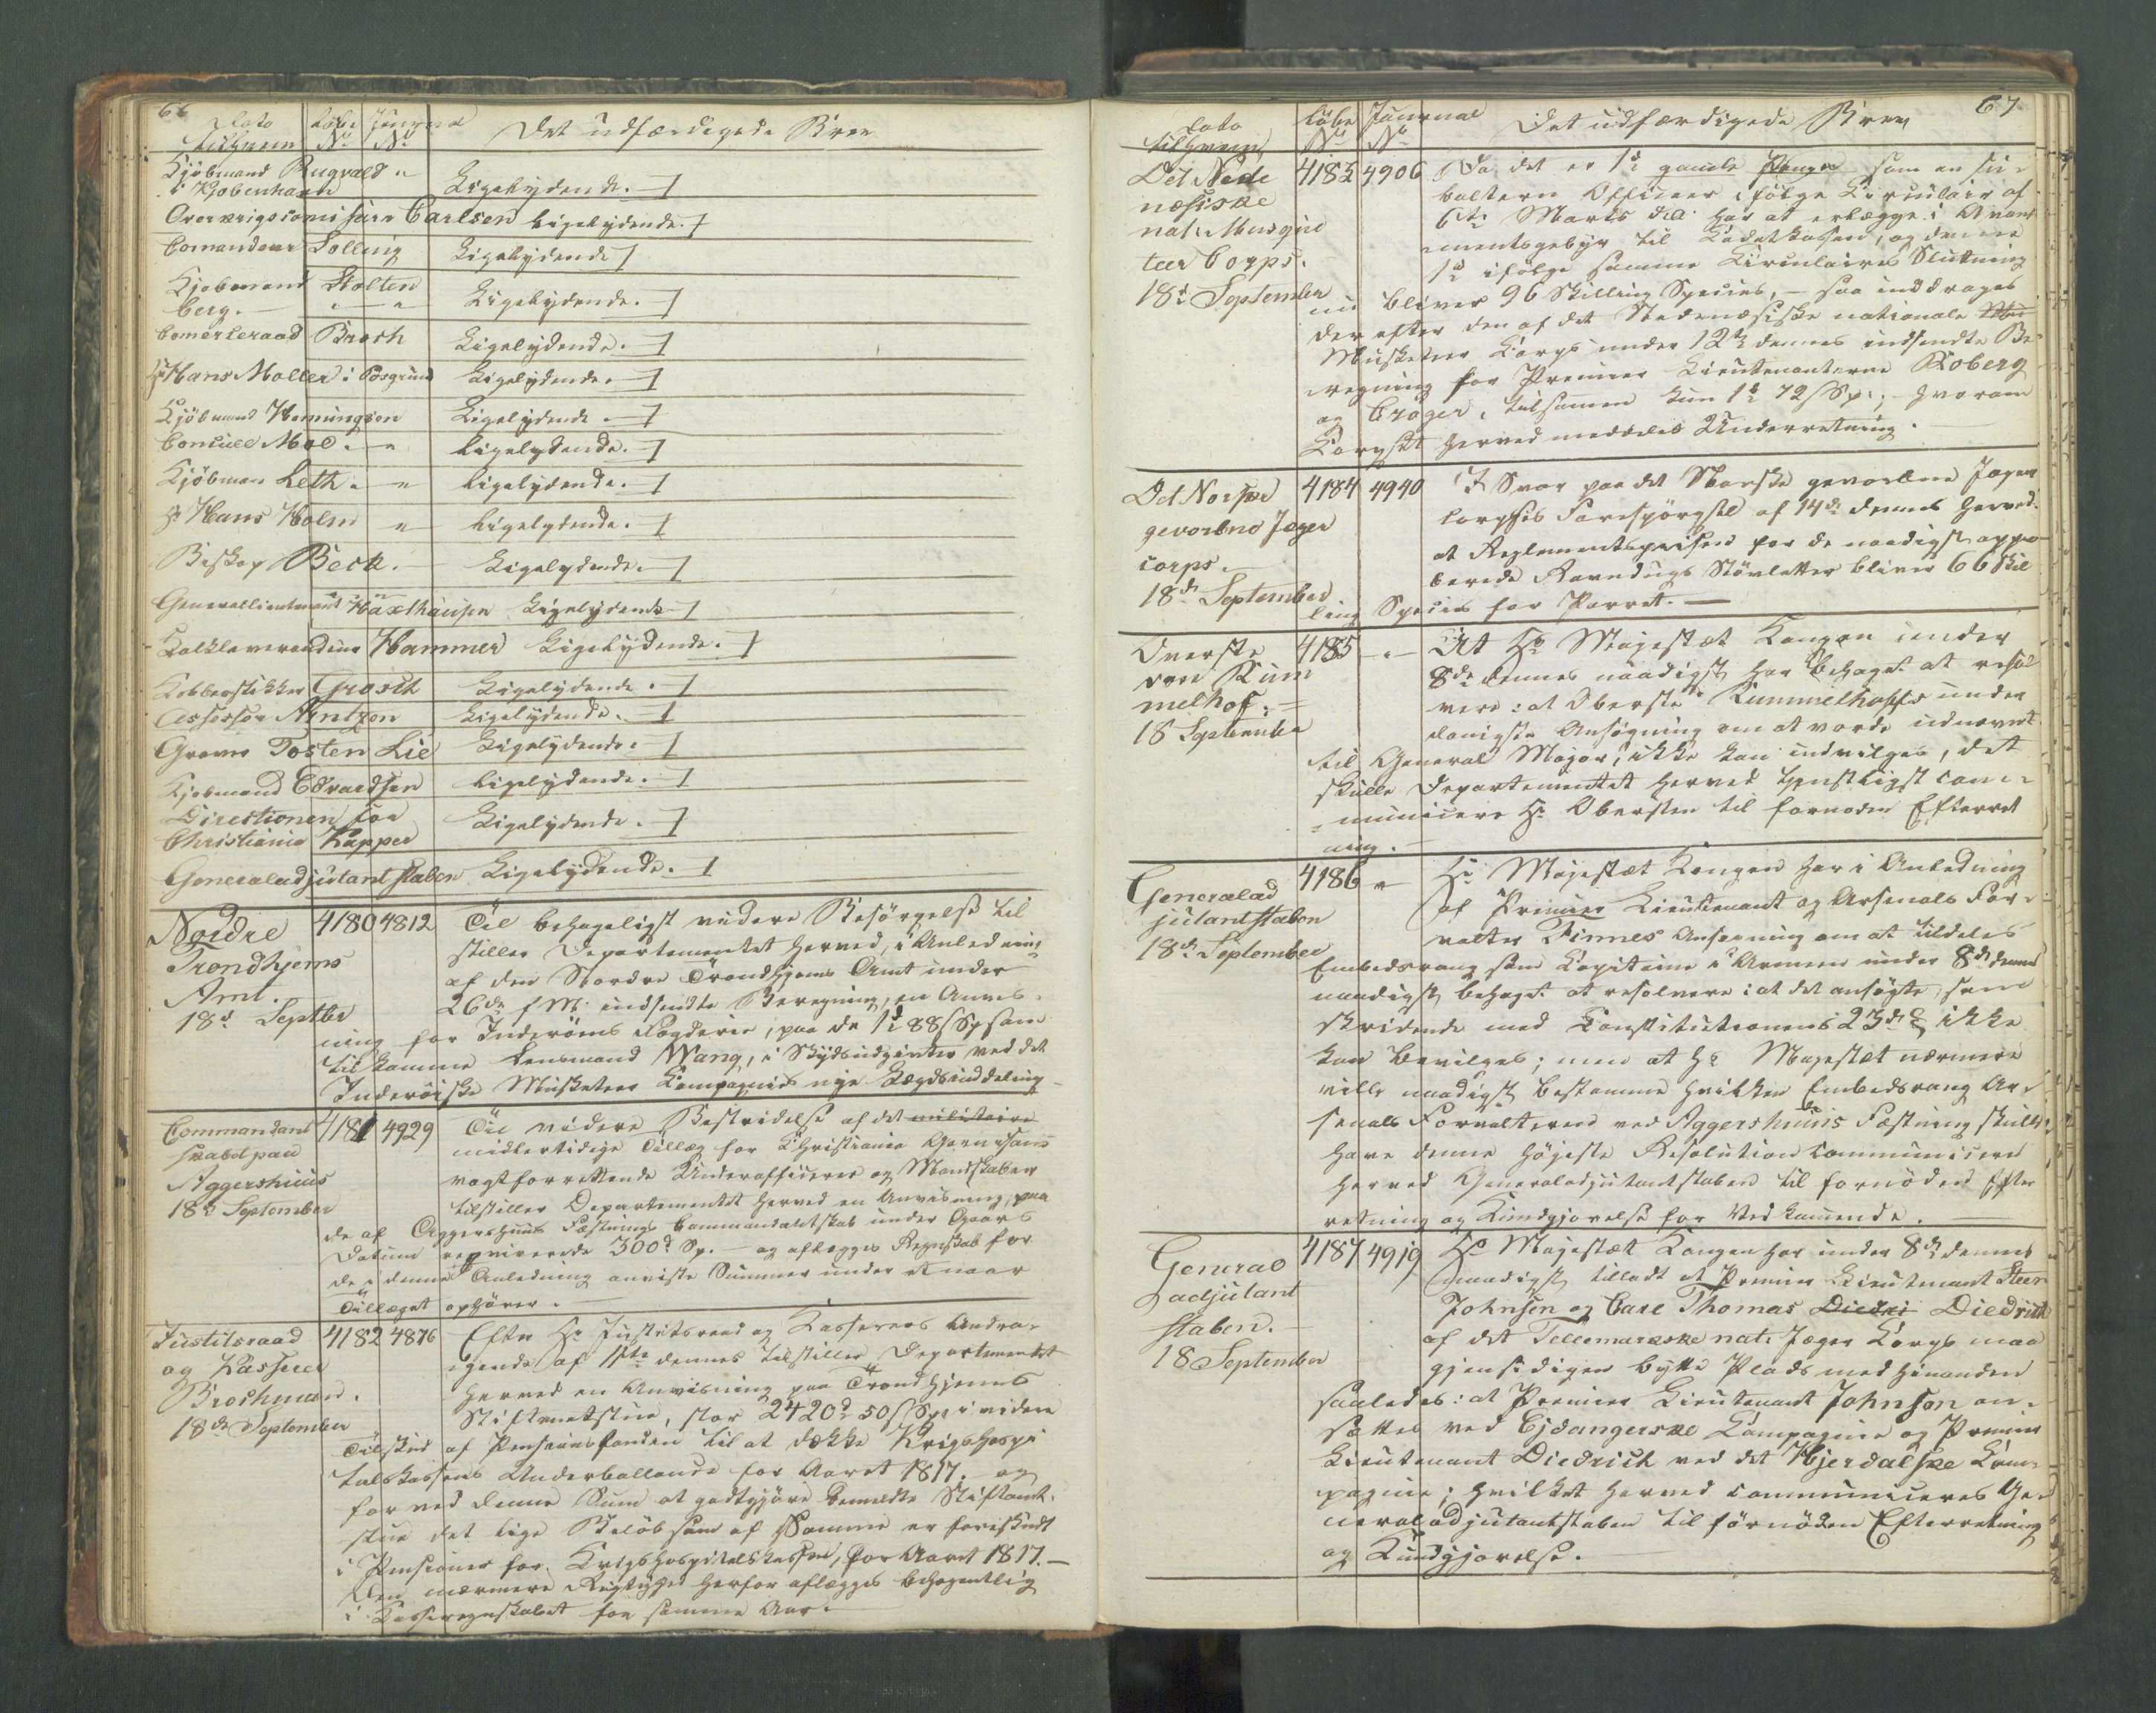 66
Dato
til hvem
Løbe
No
Journal
No
Det udfærdigede Brev
Kjöbmand Rugvald "
i Kjøbenhavn
Ligelydende.
Overkrigscomissair Carlsen Ligelydende.
Comandeur Solling Ligelydende
Kjøbmand Stolten
berg. — " — " Ligelydende.
Comerceraad Broch Ligelydende.
Hr Hans Møller i Porsgrund Ligelydende.
Kjöbmand Hemmingsen Ligelydende.
Consul Moe. — " Ligelydende.
Kjöbman Leth. — " Ligelydende.
Hr Hans Holm " Ligelydende.
Biskop Bech. — Ligelydende.
Generallieutenant Haxthausen Ligelydende
Hammer Ligelydende.
Kobberstikker Grosch Ligelydende.
Assessor Ligelydende.
Graver Tosten Lie Ligelydende.
Kjøbmand Edvardsen Ligelydende.
Directionen for
Christiania Ligelydende.
Generaladjutantstaben Ligelydende.
Nordre
Trondhjems
Amt.
18d Septbr
4180 4812
Til behageligst videre Besörgelse til
stiller Departementet herved, i Anledning
af den Nordre Trondhjems Amt under
26de f. M. indsendte Beregning, en Anvis-
ning for Inderöens Fogderie, paa de 1d 88 s Sp som
tilkomme Lensmand Wang, i Skydsudgivter ved det
Inderöiske Musketeer Compagnies nye Lægdsinddeling
Commandant
skabet paa
Aggershuus
18d September
4181 4929
Til videre Bestridelse af det militaire
midlertidige Tillæg for Christiania Garnisons
vagtforrettende Underofficierer og Mandskaber
tilstiller Departementet herved en Anvisning, paa
de af Aggershuus Fæstnings Commandantskab under Gaars
Datum reqvirerede 300d Sp. — og aflægges Regnskab for
de i denne Anledning anviste Summer under et naar
Tillæget ophörer.
Justitsraad
og Kasserer
Brochmann.
18de September
4182 4876
Efter Hr Justitsraad og Kasserers Andra-
gende af 11te dennes tilstiller Departementet
herved en Anvisning paa Trondhjems
Stiftamtstue, stor 2420d 50 s Sp. i videre
Tilskud af Pensionsfonden til at dække Krigshospi
talskassens Underballance for Aaret 1817. og
for ved denne Sum at godtgjöre bemeldte Stiftamt-
stue det lige Belöb som af Samme er forskudt
i Pensioner for Krigshospitalskassen, for Aaret 1817. —
Den nærmere Rigtighed herfor aflægges behagentlig
i Kasseregnskabet for samme Aar.
67
Dato
til hvem
Löbe
No
Journal
No
Det udfærdigede Brev
Det Nede
næsiske
nat. Musque
teer Corps.
18d September
4183 4906
Da det er 1d gamle Penge som en su-
baltern Officeer ifølge Circulair af
6te Marts d.A. har at erlægge i Avanc
ementsgebyr til Cadetkassen, og denne
1d ifölge samme Circulaires Slutning
nu bliver 96 Skilling Species, — saa inddrages
derefter den af det Nedenæsiske nationale
Musketeer Corps under 12te dennes indsendte Be-
regning for Premier Lieutenanterne Roberg
og Crøger, tilsammen kun 1d 72 s Sp.; — hvorom
Corpset herved meddeles Underretning.
Det Norske
gevorbne Jæger
corps.
18de September
4184 4940
I Svar paa det Norske gevorbne Jæger
corpses Forespörgsel af 14de dennes herved.
at Reglementsprisen for de naadigst appro-
berede Ravndugs Stövletter bliver 66 Skil
ling Species for Parret. —
Overste
von Rum
melhof. —
18 September
4185 "
At Hs Majestæt Kongen under
8de dennes naadigst har behaget at resol
vere: at Oberste Rummelhoffs under
danigste Ansøgning om at vorde udnævnt
til General Major, ikke kan indvilges, det
skulle Departementet herved tjenstligst com-
municere Hr Obersten til fornøden Efterret
ning. —
Generalad
jutantstaben
18de September
4186 "
Hs Majestæt Kongen har i Anledning
af Premier Lieutenant og Arsenals For-
valter Finnes Ansøgning om at tildeles
Embedsrang som Capitaine i Armeen under 8de dennes
naadigst behaget at resolvere: at det ansøgte, som
stridende mod Constitutionens 23de § ikke
kan bevilges; men at Hs Majestæt nærmere
ville naadigst bestemme hvilken Embedsrang Ar-
senals Forvalteren ved Aggershuus Fæstning skulle
have denne höjeste Resolution communiceres
herved Generaladjutantstaben til fornöden Efter
retning og Kundgjørelse for Vedkommende.
General
adjutant
staben.
18 September
4187 4919
Hs Majestæt Kongen har under 8de dennes
naadigst tilladt at Premier Lieutenant Steen
Johnsen og Carl Thomas Diedri Diedrich
af det Tellemarkske nat. Jæger Corps maa
gjensidigen bytte Plads med hinanden
saaledes: at Premier Lieutenant Johnsen an-
sættes ved Ejdangerske Compagnie og Premier
Lieutenant Diedrich ved det Hjerdalske Com-
pagnie; hvilket herved communiceres Ge-
neraladjutantstaben til förnöden Efterretning
og Kundgjørelse.